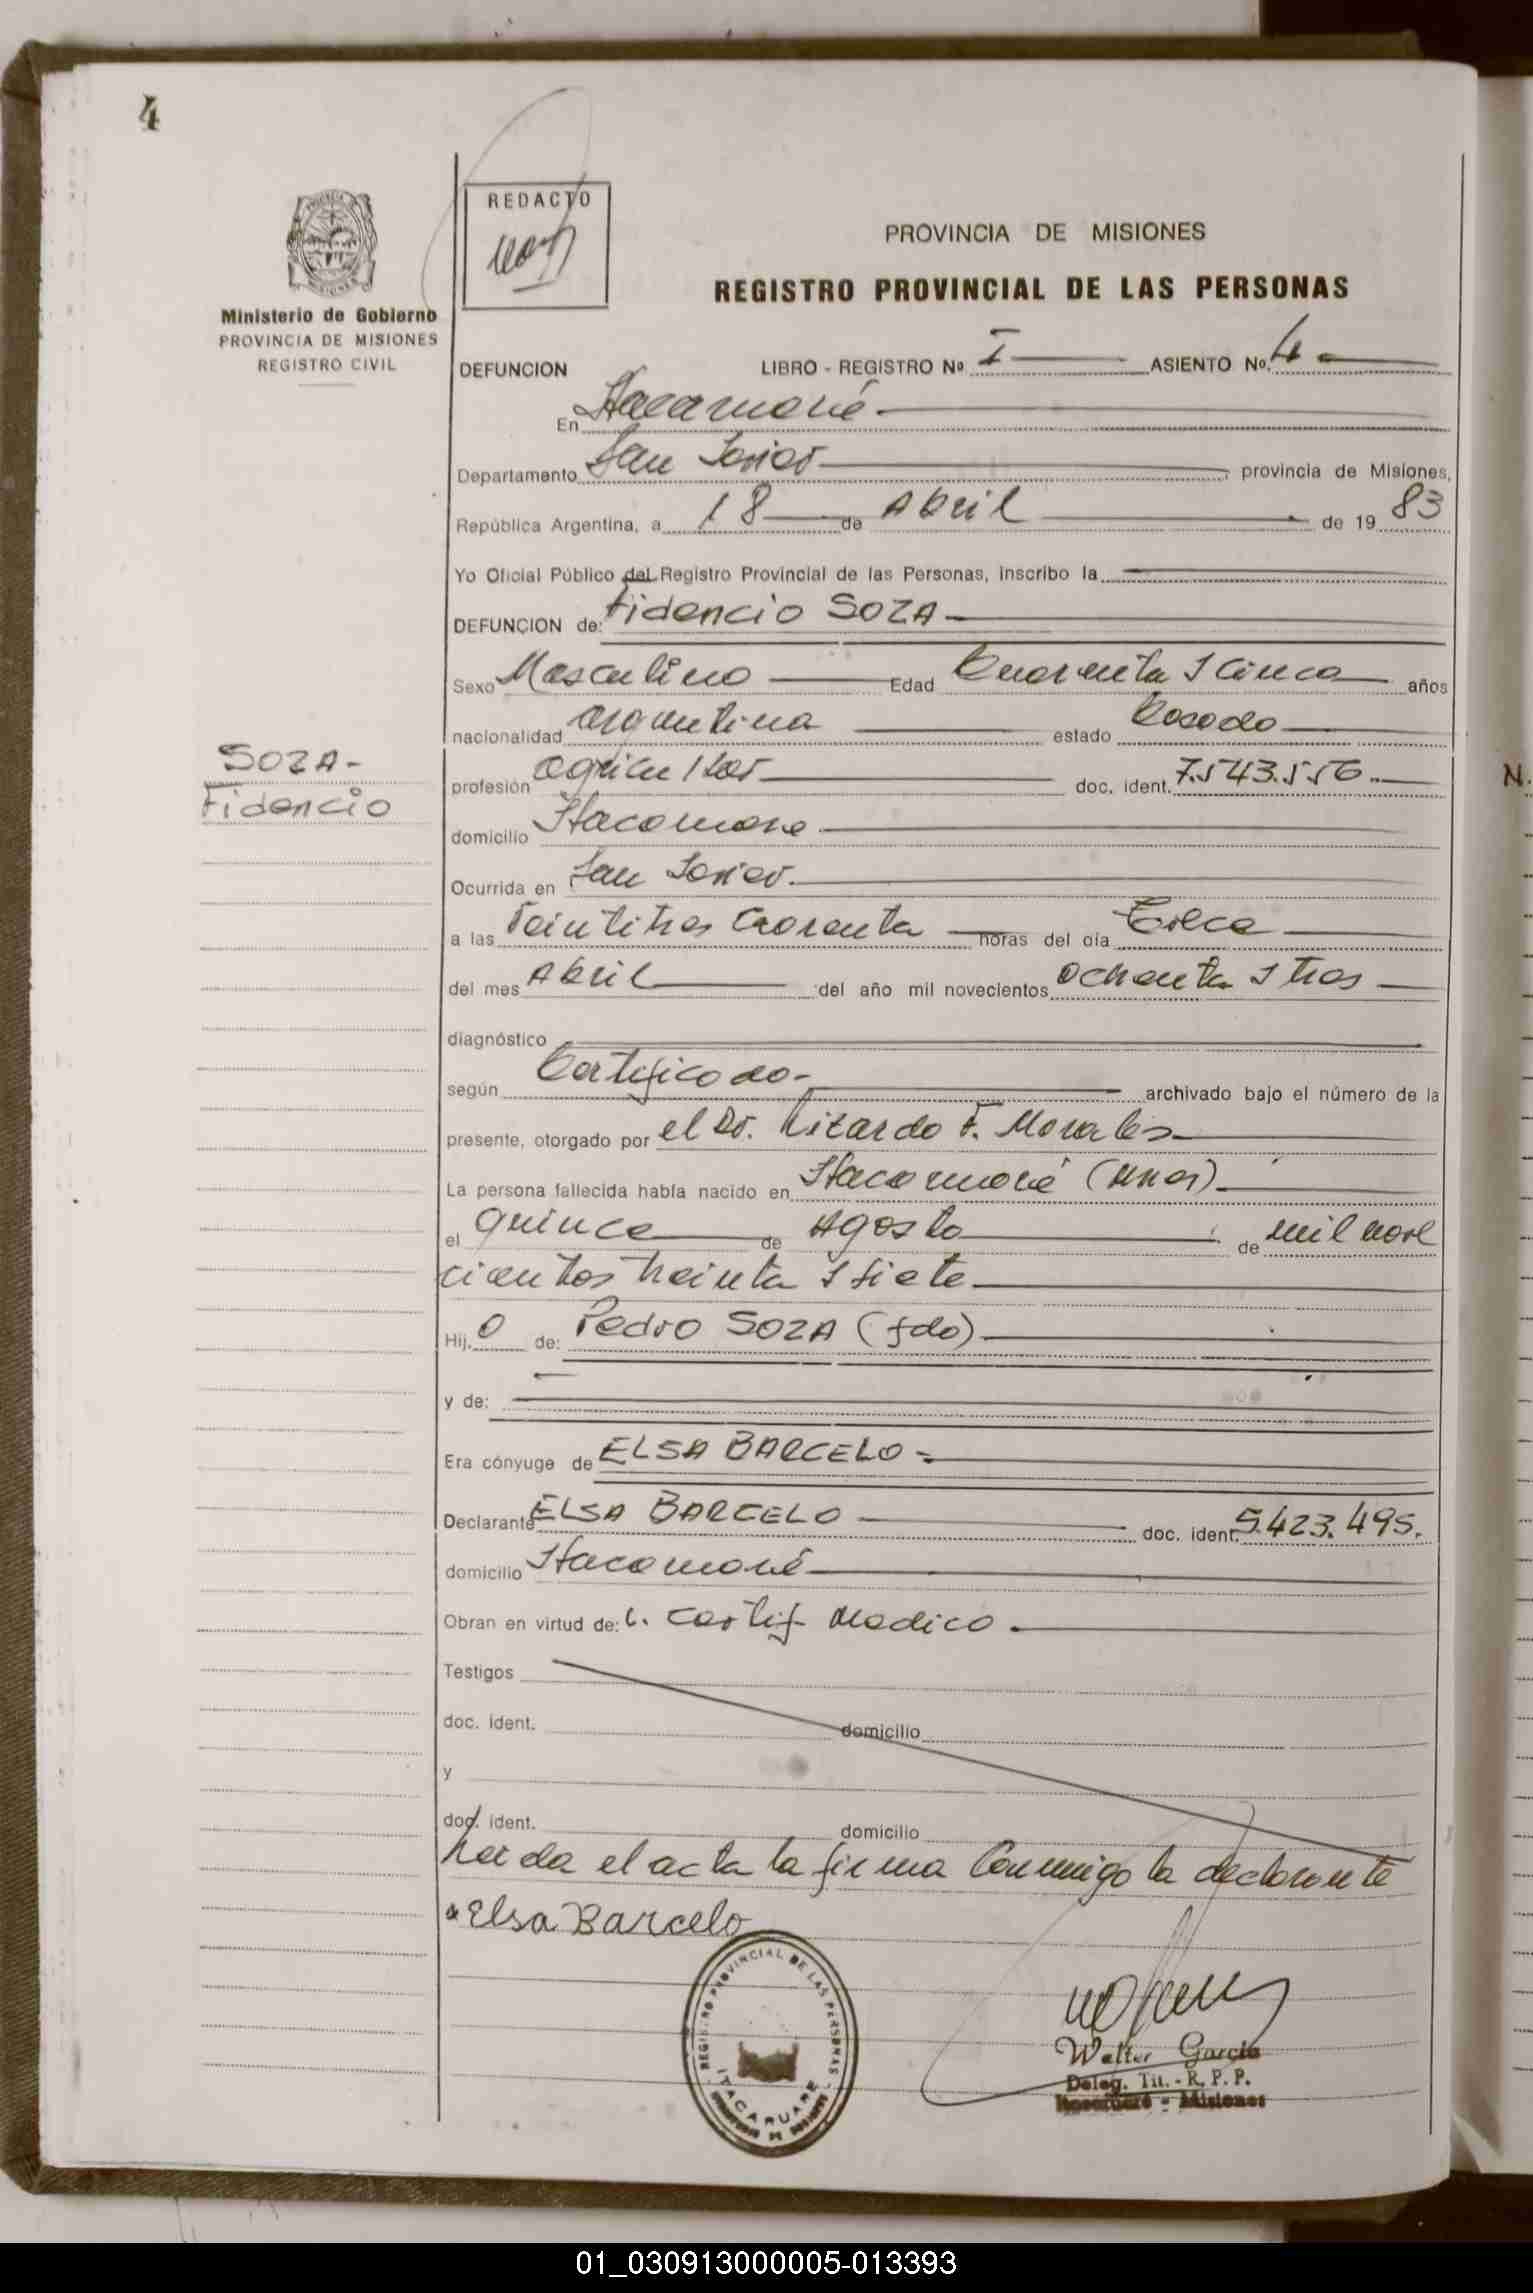 4
REDACTO
PROVINCIA DE MISIONES
REGISTRO PROVINCIAL DE LAS PERSONAS
Ministerio de Gobierno
PROVINCIA DE MISIONES
REGISTRO CIVIL
DEFUNCION LIBRO - REGISTRO Nº I ASIENTO Nº 4
En Itacaruaré
Departamento San Javier, provincia de Misiones,
República Argentina, a 18 de Abril de 19 83
Yo Oficial Público del Registro Provincial de las Personas, inscribo la
DEFUNCION de: Fidencio SOZA
Sexo Masculino Edad Cuarenta y Cinco años
nacionalidad argentina estado Casado
SOZA-
Fidencio
profesión agricultor doc. ident. 7.543.556.
domicilio Itacaruare
Ocurrida en San Javier.
a las Veintitres Cuarenta horas del día Trece
del mes Abril del año mil novecientos Ochenta y tres
diagnóstico
según Certificado- archivado bajo el número de la
presente, otorgado por el Dr. Ricardo F. Morales
La persona fallecida había nacido en Itacaruaré (Mnes)
el quince de Agosto de mil nove
cientos treinta y siete
Hij. o de: Pedro SOZA (fdo)
y de:
Era cónyuge de ELSA BARCELO
Declarante ELSA BARCELO doc. ident. 5.423.495.
domicilio Itacaruaré
Obran en virtud de: Certif Medico.
Testigos
doc. ident. domicilio
y
doc. ident. domicilio
el acta la firma Conmigo la declarante
Elsa Barcelo
REGISTRO PROVINCIAL DE LAS PERSONAS
ITACARUARE
Walter Garcia
Deleg. Tit. - R. P. P.
Itacaruaré - Misiones
N.
01_030913000005-013393